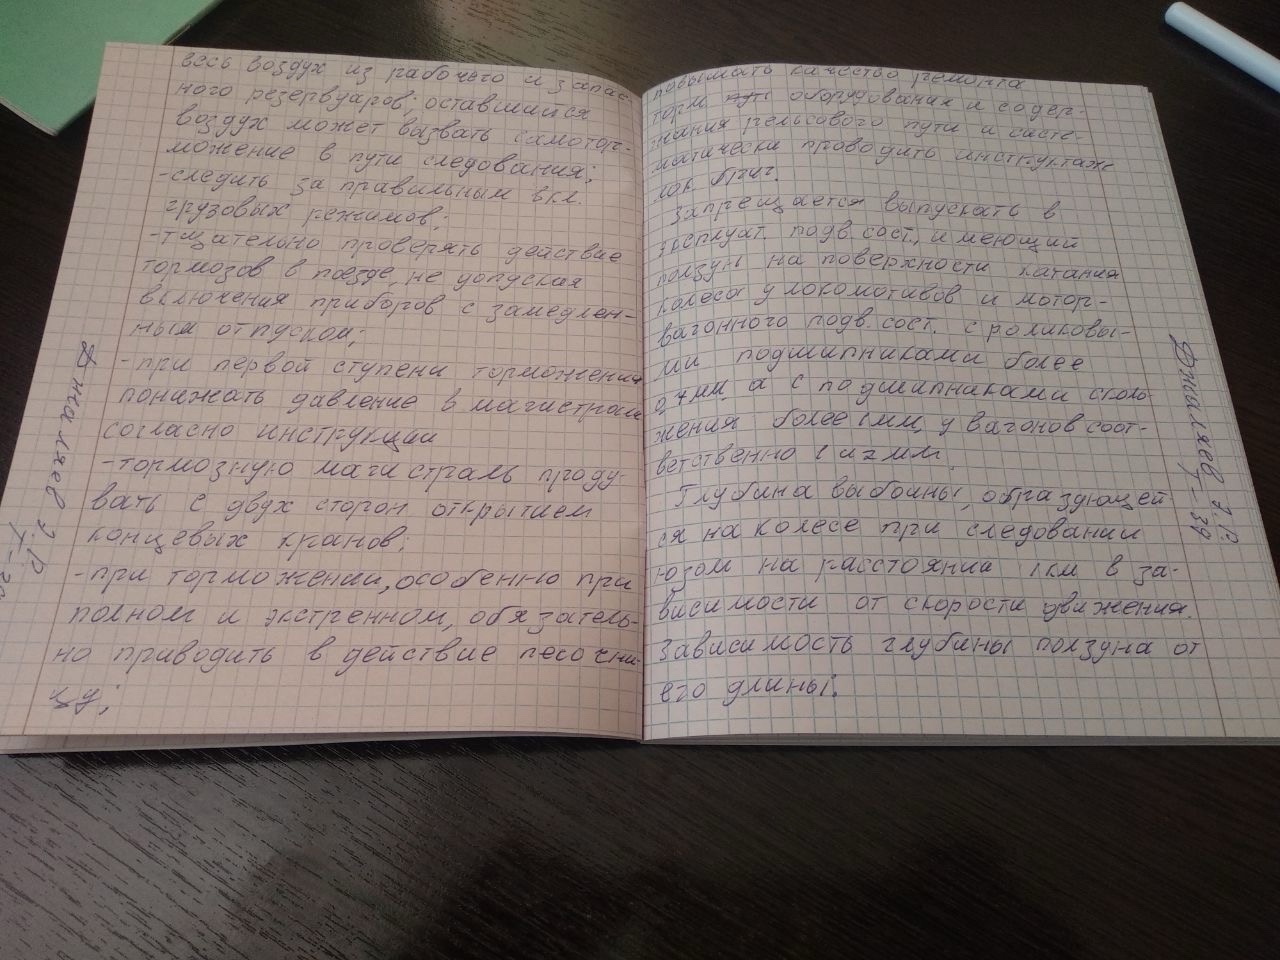 весь воздух из рабочего и запас-
ного резервуаров; оставшийся
воздух может вызвать самотор-
можение в пути следования;
-следить за правильным вкл.
грузовых режимов;
-тщательно проверять действие
тормозов в поезде, не допуская
включения приборов с замедлен-
ным отпуском;
-при первой ступени торможения
понижать давление в магистрали
согласно инструкции
-тормозную магистраль проду-
вать с двух сторон открытием
концевых кранов;
-при торможении, особенно при
полном и экстренном, обязатель-
но приводить в действие песочни-
цу;
Джаляев Э.Р.
повышать качество ремонта
торм оборудования и содер-
жания рельсового пути и систе-
матически проводить инструктаж
лок. бриг.
Запрещается выпускать в
эксплуат. подв. сост., имеющий
ползун на поверхности катания
колеса у локомотивов и мотор-
вагонного подв. сост. с роликовы-
ми подшипниками более
0,7мм, а с подшипниками сколь-
жения более 1мм, у вагонов соот-
ветственно 1 и 2мм.
Глубина выбоины, образующей
ся на колесе при следовании
юзом на расстоянии 1км в за-
висимости от скорости движения.
Зависимость глубины ползуна от
его длины:
Джаляев Э.Р.
Т-39